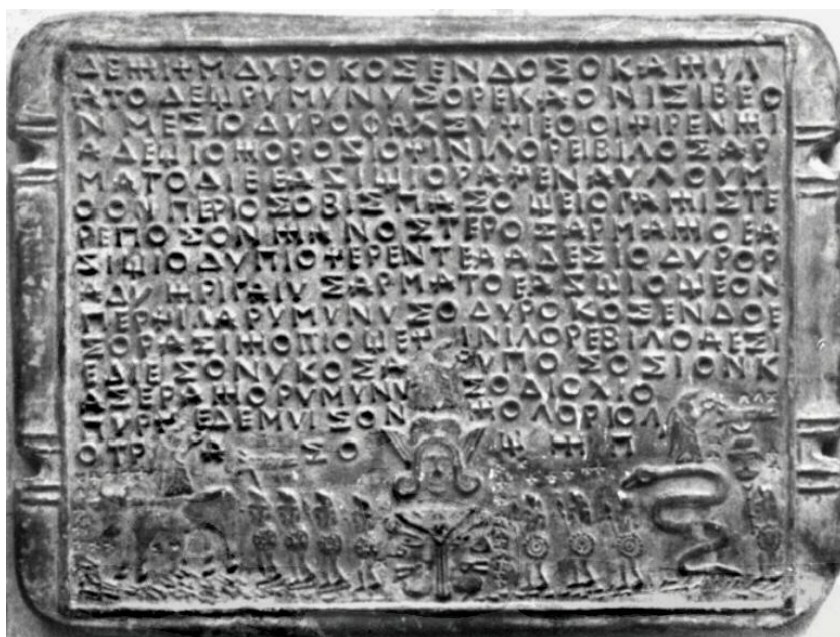 ΔΕΨΙΨΜΔΥΡΟΚΟΣΕΝΔΟΣΟΚΑΨΥΛ
ΑΤΟΔΕΨΡΥΜΥΝΥΣΟΡΕΚΑΟΝΙΣΙΒΕΟ
ΝΜΕΣΙΟΔΥΡΟΦΑΧΣΥΨΙΕΟΟΙΨΙΡΕΝΨΙ
ΑΔΕΨΙΟΨΟΡΟΣΙΟΨΙΝΙΛΟΡΕΙΒΙΛΟΣΑΡ
ΜΑΤΟΔΙΕΕΑΣΙΨΙΟΡΑΨΕΝΑΥΛΟΥΜ
ΘΟΝΠΕΡΙΟΣΟΒΙΣΠΑΣΟΨΕΙΟΓΑΨΙΣΤΕ
ΡΕΠΟΣΟΝΨΑΝΟΣΤΕΡΟΣΑΡΜΑΨΟΕΑ
ΣΙΨΙΟΔΥΠΙΟΨΕΡΕΝΤΕΑΑΔΕΣΙΟΔΥΡΟΡ
ΑΔΥΨΡΙΓΑΙΥΣΑΡΜΑΤΟΕΑΣΨΙΟΨΕΟΝ
ΠΕΡΨΙΛΑΡΥΜΥΝΥΣΟΔΥΡΟΚΟΣΕΝΔΟΕ
ΣΟΡΑΣΙΨΟΠΙΟΨΕΨΙΝΙΛΟΡΕΒΙΛΟΑΕΣΙ
ΕΔΙΕΣΟΝΥΚΟΣΑ ΣΥΠΟΣΟΣΙΟΝΚ
ΑΣΕΡΑΨΟΡΥΜΥΝΥ ΣΟΔΙΟΧΙΟ
ΠΥΡΨΕΔΕΜΥΙΣΟΝ ΨΟΛΟΡΙΟΛ
ΟΤΡ Α ΣΟ Ψ Ψ Η Π